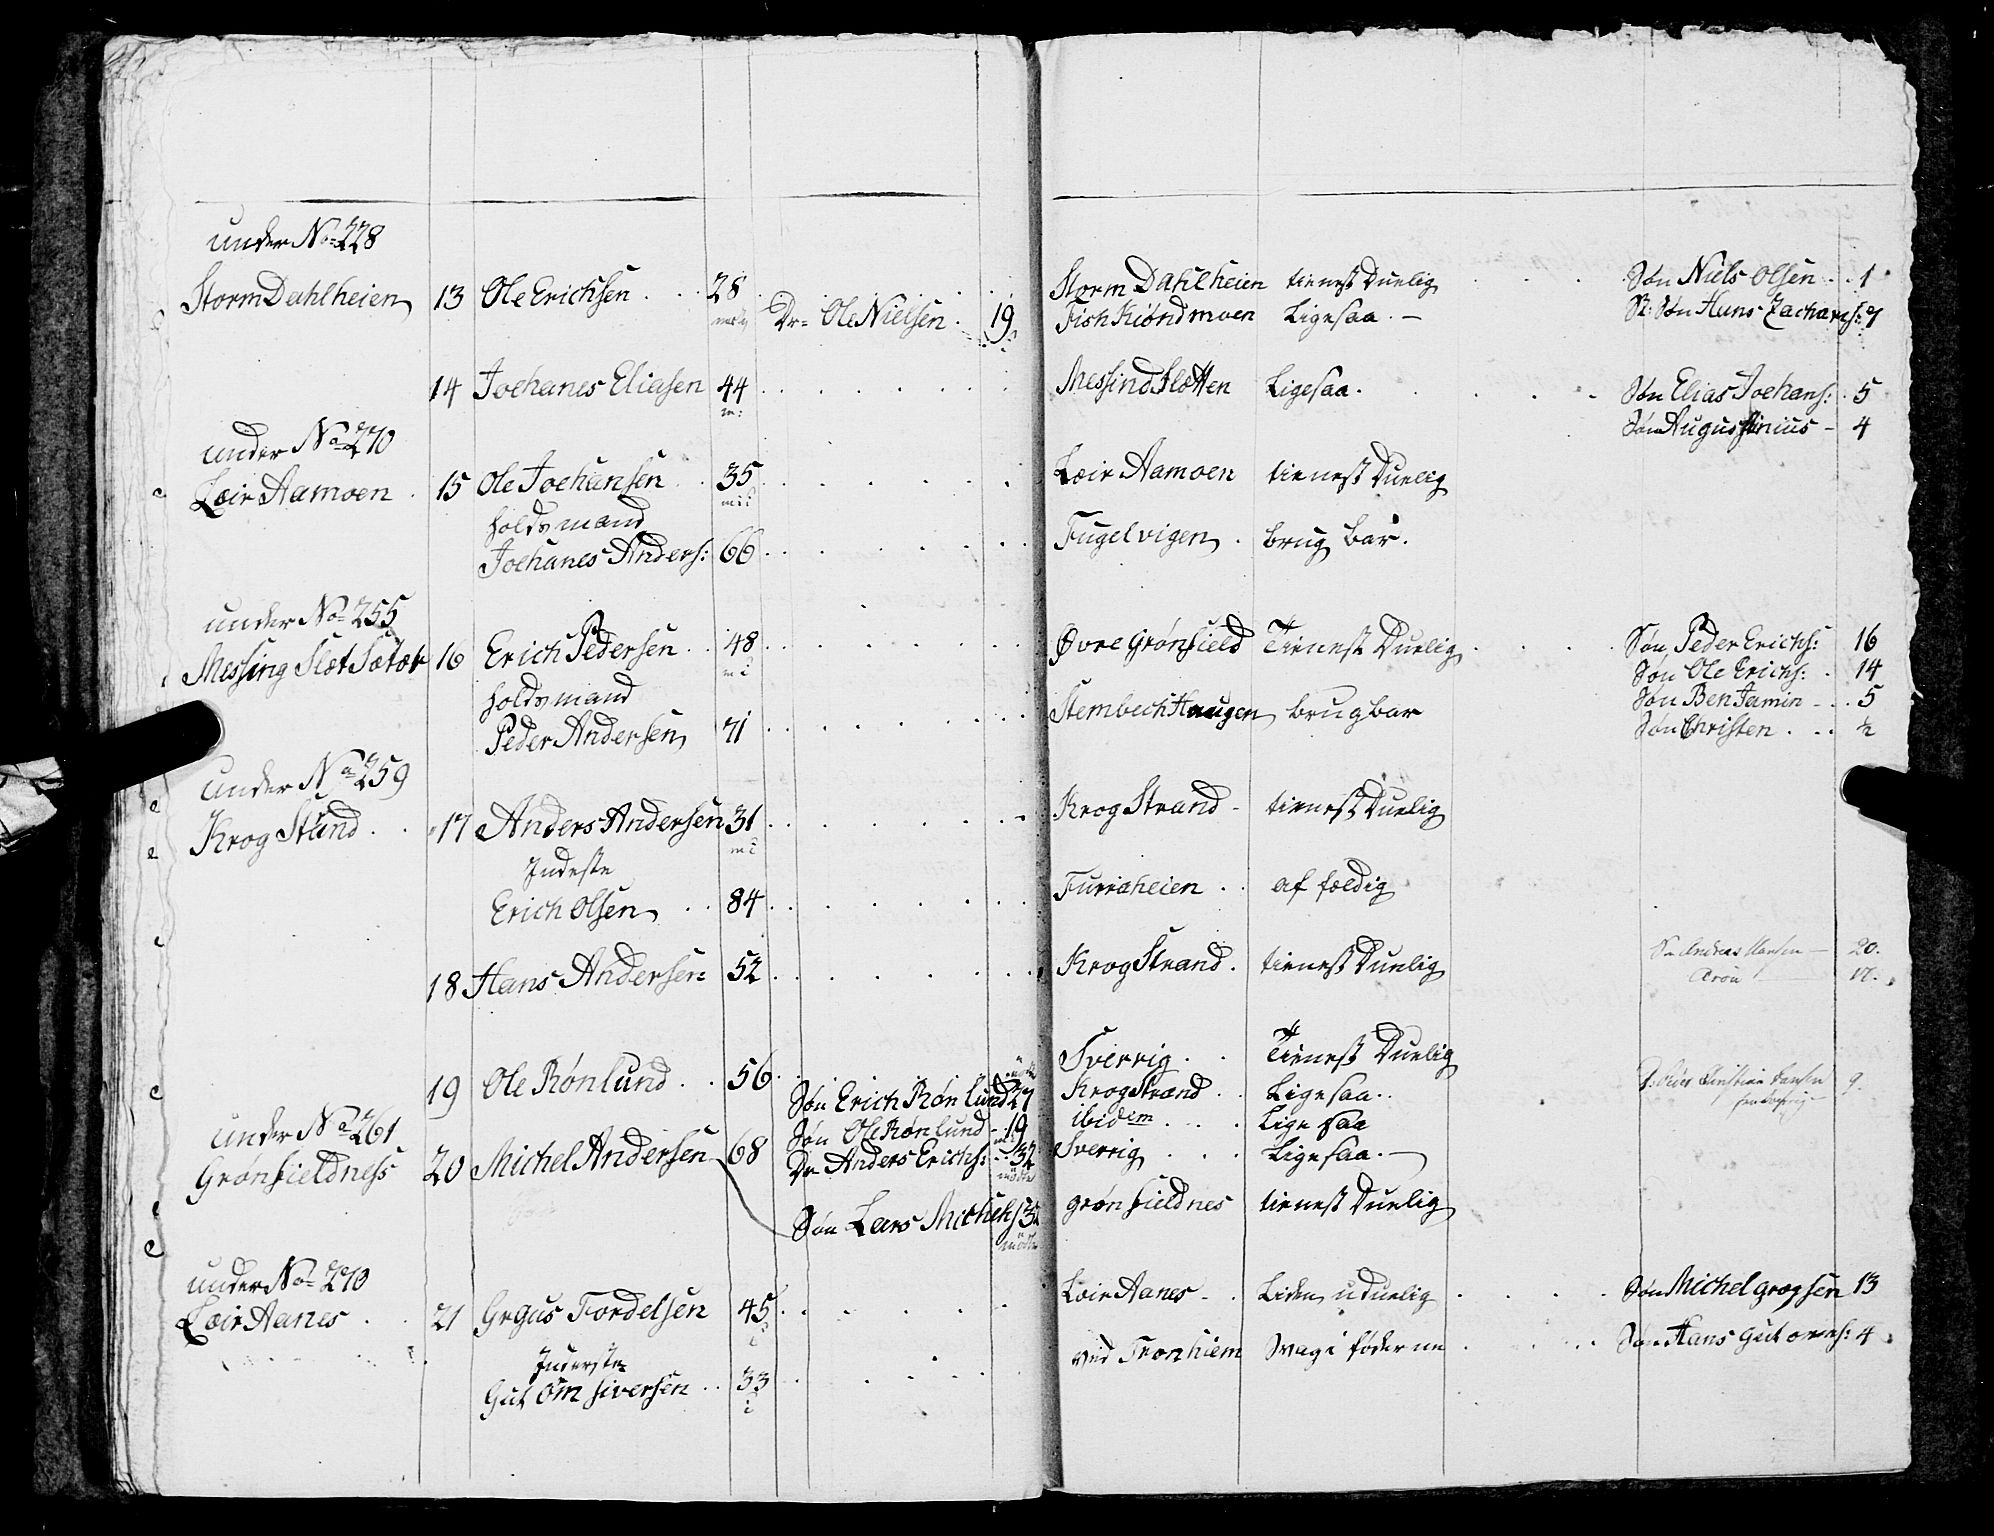 under No 228
Storm Dahlheien 13 Ole Erichsen . . 28 . . . Storm Dahlheien tienest Duelig . . . Søn Niels Olsen . . 1
Dr= Ole Nielsen . 19 Fish Kiøndmoen Ligesaa . — St: Søn Hans Zachars: 7
14 Joehanes Eliasen 44 . . . Messind Sletten Ligesaa . . . . Søn Elias Joehans: . 5
m:
Søn Augustinius - 4
under No 270
Leir Aamoen . 15 Ole Joehansen . 35 . . . Leir Aamoen tienest Duelig
holdsmand
Joehanes Anders: 66 . . . Fugelvigen . brug bar .
under No 255
Messing Slet Sæter 16 Erich Pedersen . . 48 . . . Øvre Grønfield Tienest Duelig . . . Søn Peder Erichs: 16
Søn Ole Erichs: . 14
holdsmand
Søn BenJamin - . 5
Peder Andersen 71 . . . Stembech Haugen brugbar Søn Christen . . . ½
under No 259
Krog Stand . . 17 Anders Andersen 31 . . . Krog Strand - tienest Duelig
Indeste
Erich Olsen . . 84 . . . Furraheien . . af fældig
18 Hans Andersen 52 . . . Krog Strand . tienest Duelig Sn Andreas Hansen — 20.
Aron — 17.
19 Ole Rønlund . . 56 . . . Sverrig . . Tienest Duelig
Søn Erich Rønlund 27 Krog Strand . . Ligesaa . . Christian Hansen 9.
under No 261
Søn Ole Rønlund - 19 ibidem . . . Lige saa
Grønfieldness 20 Michel Andersen 68 Dr Anders Erichs: . . 32 Sverrig . . . Ligesaa . —
Søn Lars Michels 32 grønfieldnes tienest Duelig
under No 270
Leir Aanes . . 21 Grgus Tordelsen 45 . . . Leir Aanes - . Liden uduelig . . . Søn Michel Grogsen 13
Inderste
Gut om siversen . . 33 . . . ved Tronhiem Svag i føderne . . . Søn Hans Gutoms: 4